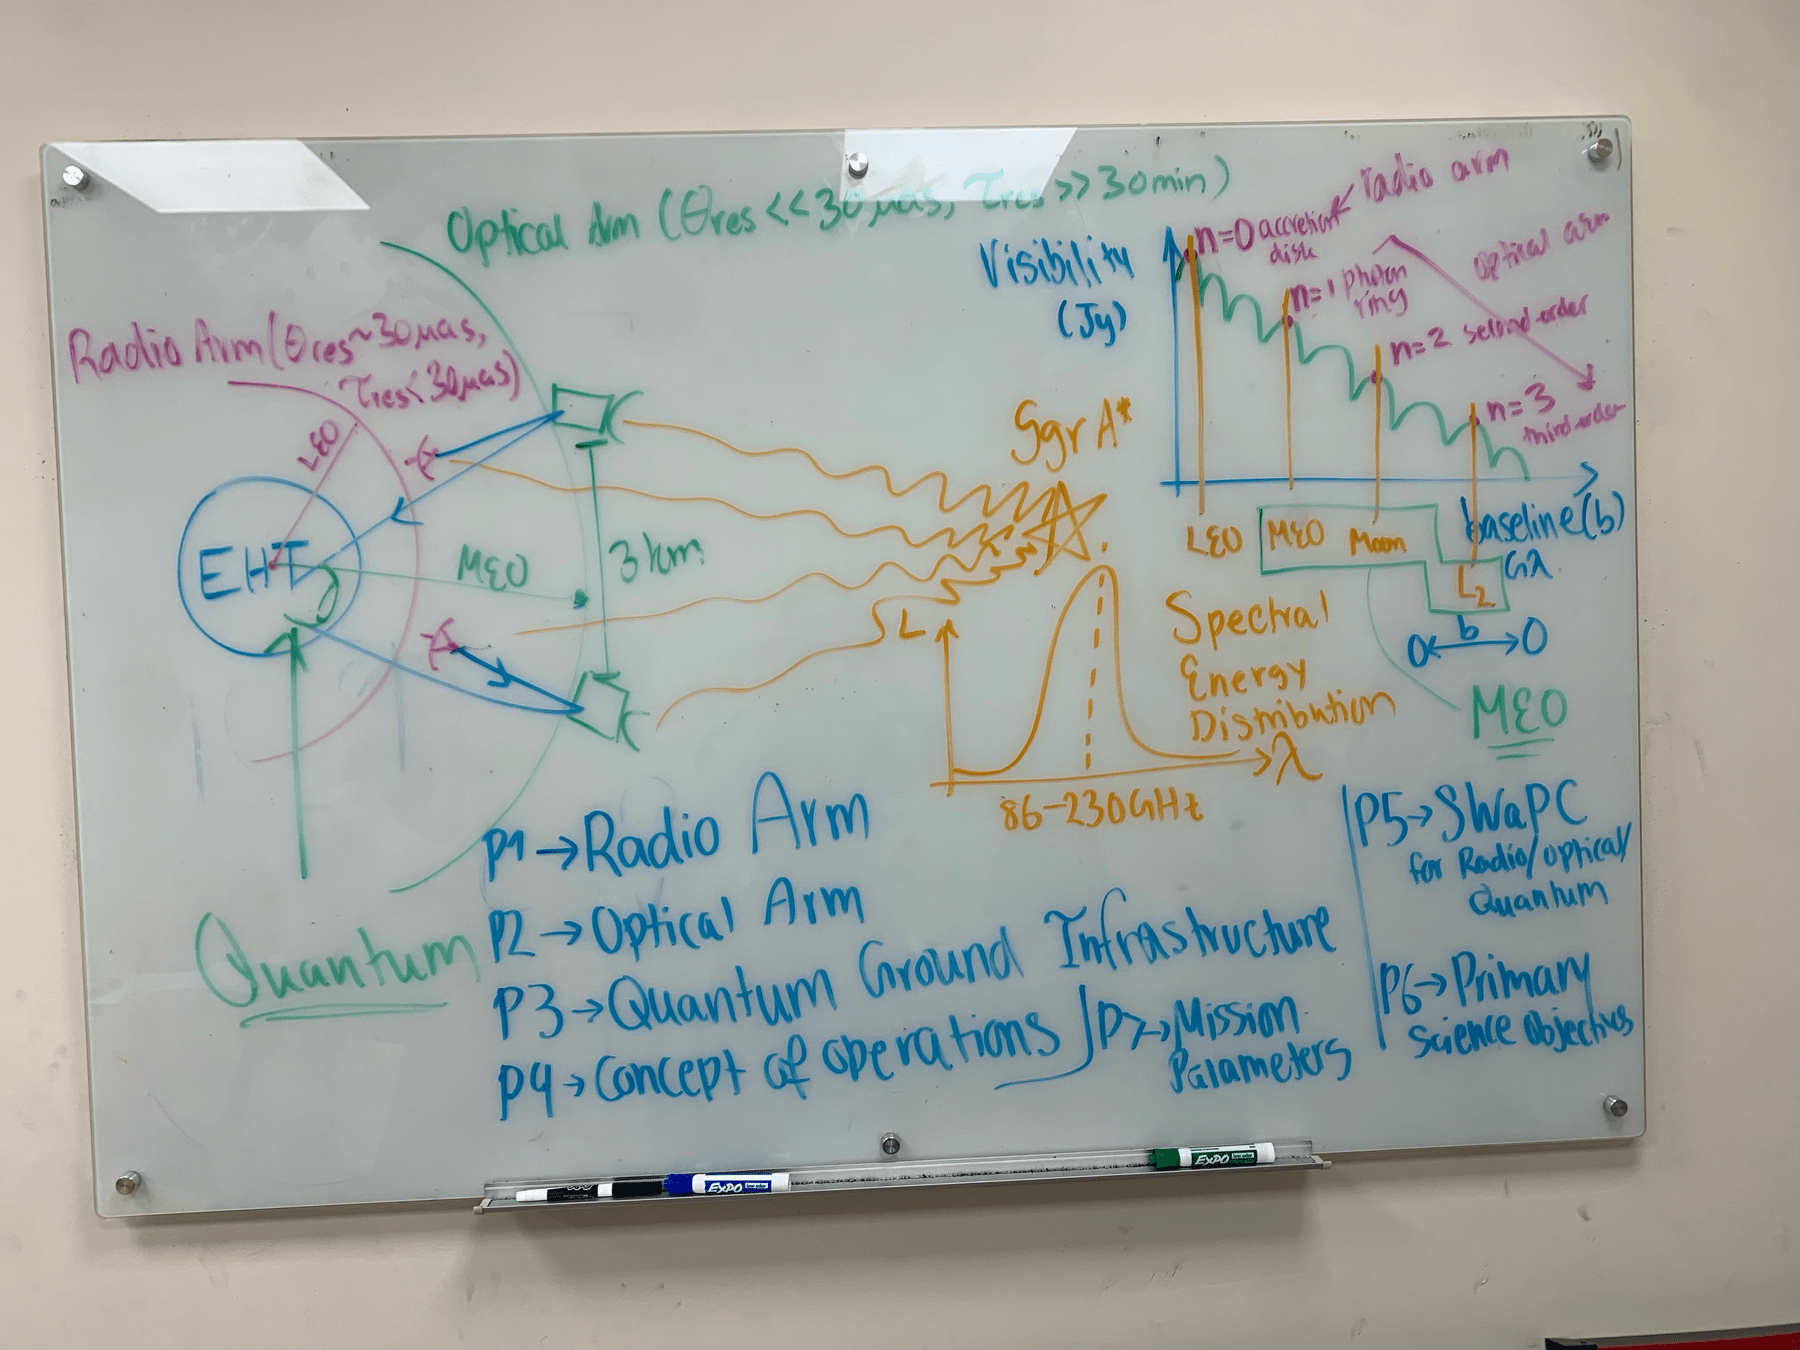 Optical Arm (θres << 30 μas, τres >> 30min)
Radio Arm (θres ~ 30 μas,
τres < 30 μas)
LEO
EHT
MEO
3 km
Quantum
Sgr A*
SL
Spectral
Energy
Distribution
λ
86-230GHz
radio arm
Optical arm
Visibility
(Jy)
n=0 accretion
disk
n=1 photon
ring
n=2 second order
n=3
third order
baseline (b)
Gλ
LEO
MEO
Moon
L2
b
MEO
P1 → Radio Arm
P2 → Optical Arm
P3 → Quantum Ground Infrastructure
P4 → Concept of operations
P7 → Mission
Parameters
P5 → SWaPC
for Radio/optical/
Quantum
P6 → Primary
Science Objectives
EXPO
EXPO